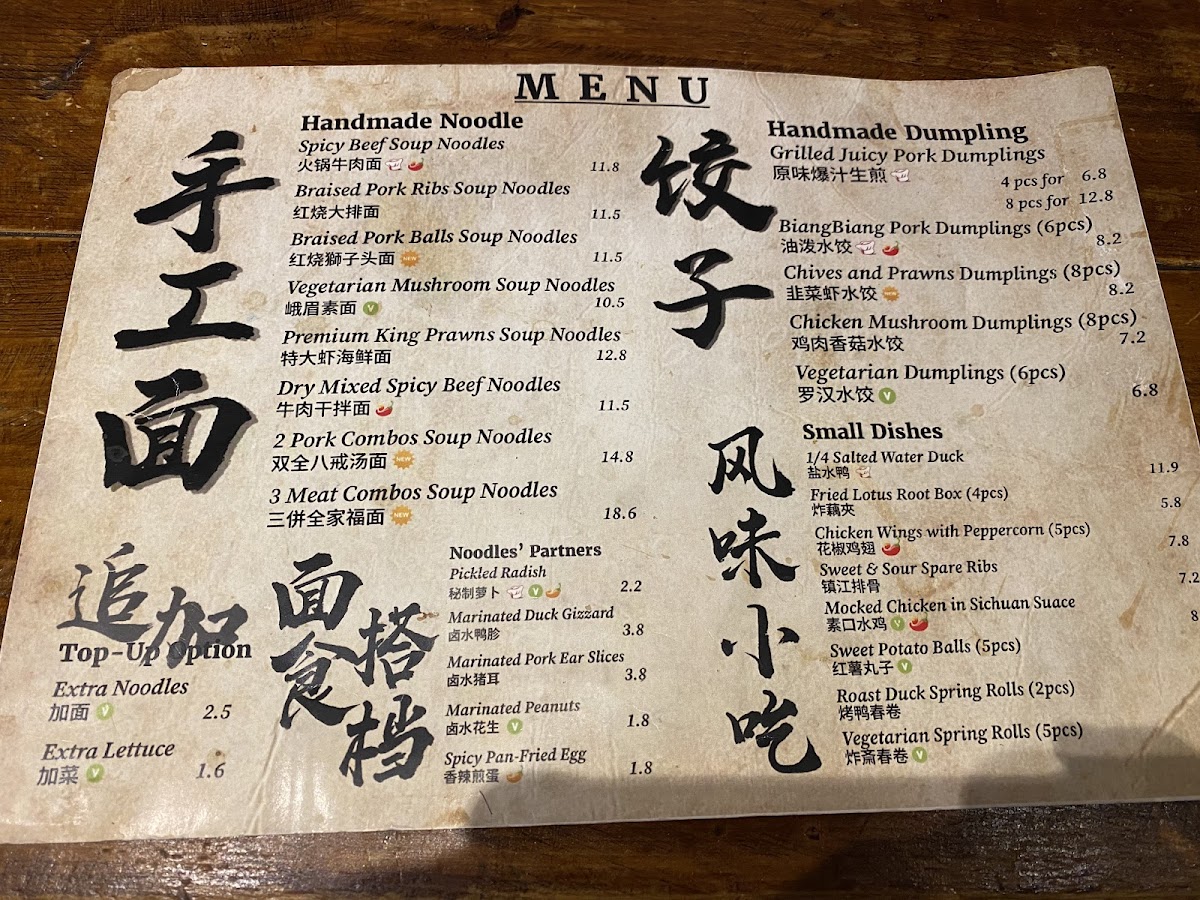 MENU
手工面
Handmade Noodle
Spicy Beef Soup Noodles
火锅牛肉面 11.8
Braised Pork Ribs Soup Noodles
红烧大排面 11.5
Braised Pork Balls Soup Noodles
红烧狮子头面 NEW 11.5
Vegetarian Mushroom Soup Noodles
峨眉素面 V 10.5
Premium King Prawns Soup Noodles
特大虾海鲜面 12.8
Dry Mixed Spicy Beef Noodles
牛肉干拌面 11.5
2 Pork Combos Soup Noodles
双全八戒汤面 NEW 14.8
3 Meat Combos Soup Noodles
三併全家福面 NEW 18.6
追加
Top-Up Option
Extra Noodles
加面 V 2.5
Extra Lettuce
加菜 V 1.6
面食搭档
Noodles' Partners
Pickled Radish
秘制萝卜 V 2.2
Marinated Duck Gizzard
卤水鸭胗 3.8
Marinated Pork Ear Slices
卤水猪耳 3.8
Marinated Peanuts
卤水花生 V 1.8
Spicy Pan-Fried Egg
香辣煎蛋 1.8
饺子
Handmade Dumpling
Grilled Juicy Pork Dumplings
原味爆汁生煎 4 pcs for 6.8
8 pcs for 12.8
BiangBiang Pork Dumplings (6pcs)
油泼水饺 8.2
Chives and Prawns Dumplings (8pcs)
韭菜虾水饺 NEW 8.2
Chicken Mushroom Dumplings (8pcs)
鸡肉香菇水饺 7.2
Vegetarian Dumplings (6pcs)
罗汉水饺 V 6.8
风味小吃
Small Dishes
1/4 Salted Water Duck
盐水鸭 11.9
Fried Lotus Root Box (4pcs)
炸藕夾 5.8
Chicken Wings with Peppercorn (5pcs)
花椒鸡翅 7.8
Sweet & Sour Spare Ribs
镇江排骨 7.2
Mocked Chicken in Sichuan Suace
素口水鸡 V 8
Sweet Potato Balls (5pcs)
红薯丸子 V
Roast Duck Spring Rolls (2pcs)
烤鸭春卷
Vegetarian Spring Rolls (5pcs)
炸斋春卷 V